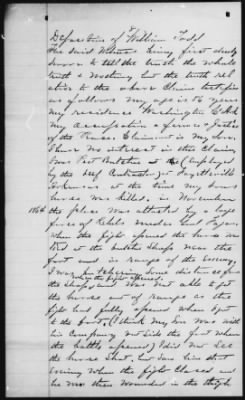 Deposition of William Todd
The said Witness being first duly
sworn to tell the truth the whole
truth & nothing but the truth rel
ative to the above Claim testifies
as follows My age is 56 years
My residence Washington C Ark
My occupation a farmer & Justice
of the Peace Claimant is My Son
I have no interest in this Claim
I was Post Butcher at the (employed
by the beef Contractor) at Fayetteville
Arkansas at the time My Sons
horse was Killed, in November
1864 the place was attacked by a large
force of Rebels under
When the fight opened the horse was
tied at the butcher Shops near the
fort and in range of the enemy,
I was some distance from
when the fight opened
the Shops and was not able to get
the horse out of range as the
fight had fully opened when I got
to the fort, (I think My Son was with
his Company in Side the fort when
the battle opened) I did not See
the horse Shot, but Saw him that
evening When the fight Closed and
he was then Wounded in the thigh